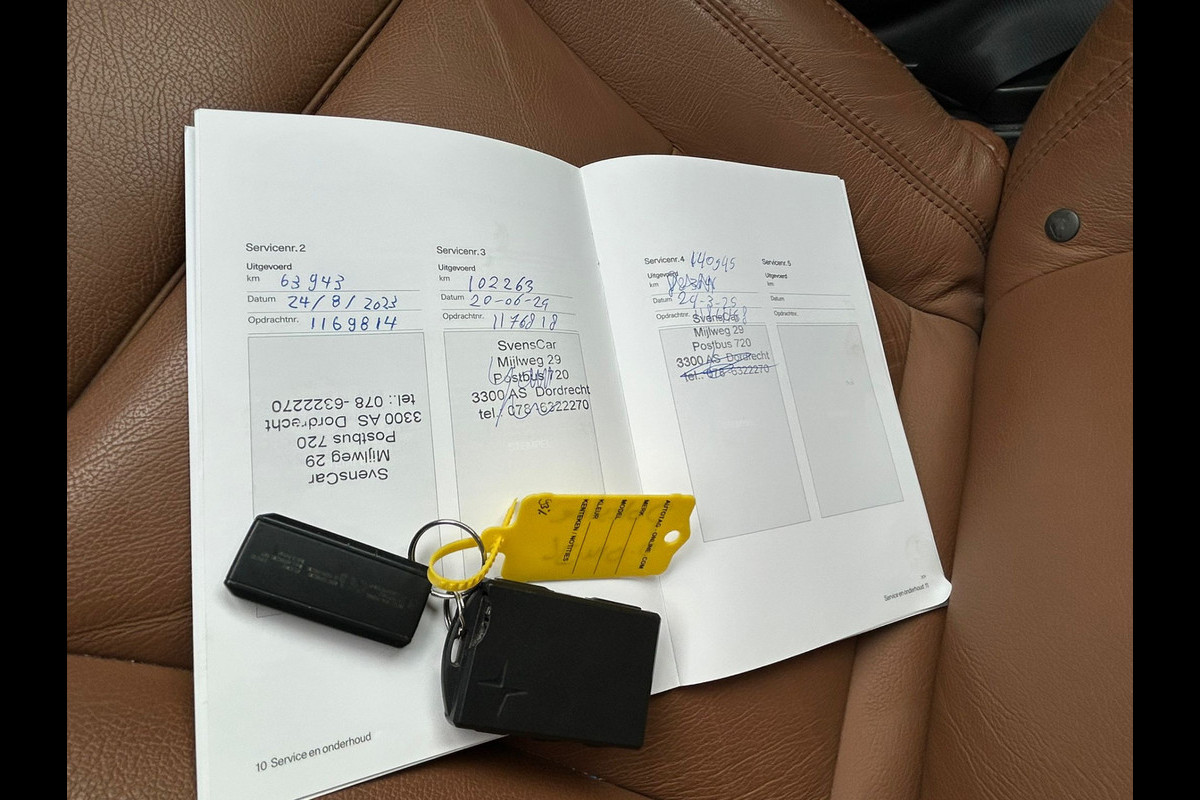 Servicenr. 2
Uitgevoerd
km 63943
Datum 24/8/2023
Opdrachtnr. 1169814
SvensCar
Mijlweg 29
Postbus 720
3300 AS Dordrecht
tel.: 078-6322270
10 Service en onderhoud
Servicenr. 3
Uitgevoerd
km 102263
Datum 20-06-24
Opdrachtnr. 1176818
SvensCar
Mijlweg 29
Postbus 720
3300 AS Dordrecht
tel.: 078-6322270
Servicenr. 4 140945
Uitgevoerd
km
Datum 24-3-25
Opdrachtnr.
SvensCar
Mijlweg 29
Postbus 720
3300 AS Dordrecht
tel.: 078-6322270
Servicenr. 5
Uitgevoerd
km
Datum
Opdrachtnr.
Service en onderhoud 11
AUTOTAG-ONLINE.COM
MERK
MODEL
KLEUR
KENTEKEN / NOTITIES